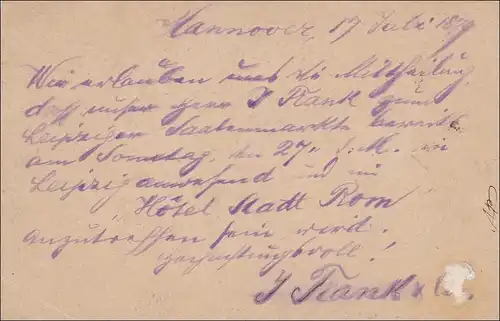 Hannover, 17 Juli 1879
Wir erlauben uns die Mittheilung
daß unser Herr J Frank zum
Leipziger Saatenmarkte bereits
am Sonntag, den 27. d. M. in
Leipzig anwesend und im
Hôtel Stadt Rom
anzutreffen sein wird.
Hochachtungsvoll!
J Frank & Co.